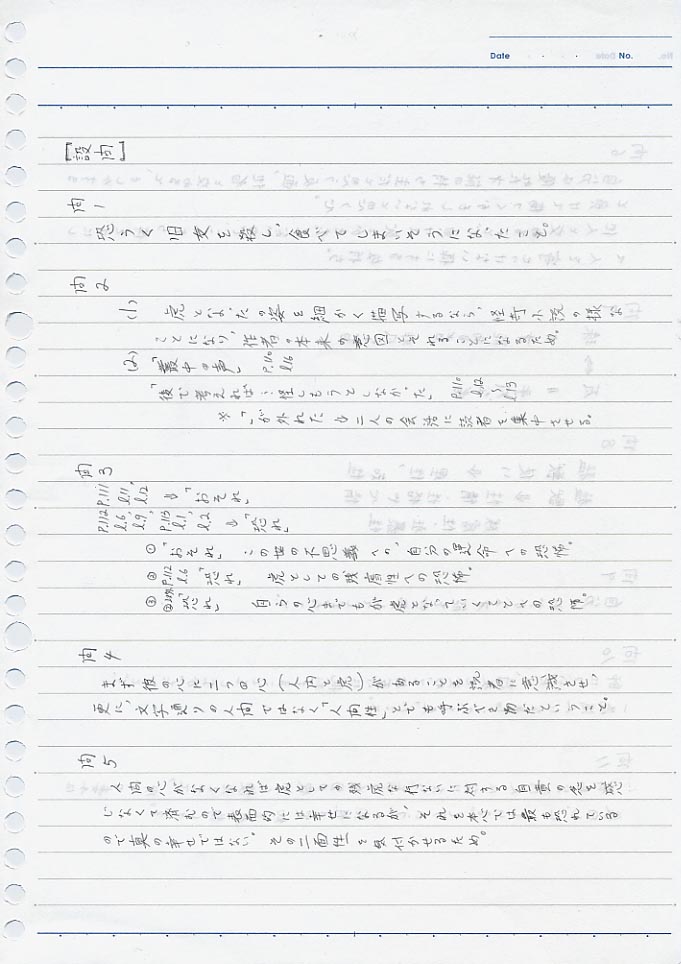 Date ・ ・ No.
[設問]
問1
恐らく旧友を殺し、食べてしまいそうになったこと。
問2
(1) 虎となった の姿を細かく描写するなら、怪奇小説の様な
ことになり、作者の本来の意図とそれることになるため。
(2) 「叢中の声」 P.110 l.16
「後で考えれば…怪しもうとしなかった」 P.110 l.12 〜 l.13
※「」が外れた ⇒ 二人の会話に読者を集中させる。
問3
P.111 l.11, l.12 ⇒「おそれ」
P.112 l.6, l.9, P.113 l.1, l.2 ⇒「恐れ」
① 「おそれ」 この世の不思議への、自分の運命への恐怖。
② P.112 l.6 「恐れ」 虎としての残虐性への恐怖。
③ ②以外「恐れ」 自らの心までもが虎となっていくことへの恐怖。
問4
まず彼の心に二つの心(人間と虎)があることを読者に意識させ、
更に、文字通りの人間ではなく「人間性」とでも呼ぶべき物だということ。
問5
人間の心がなくなれば虎としての残虐な行ないに対する自責の念を感
じなくて済むので表面的には幸せになるが、それを本心では最も恐れている
ので真の幸せではない。その二面性を気付かせるため。